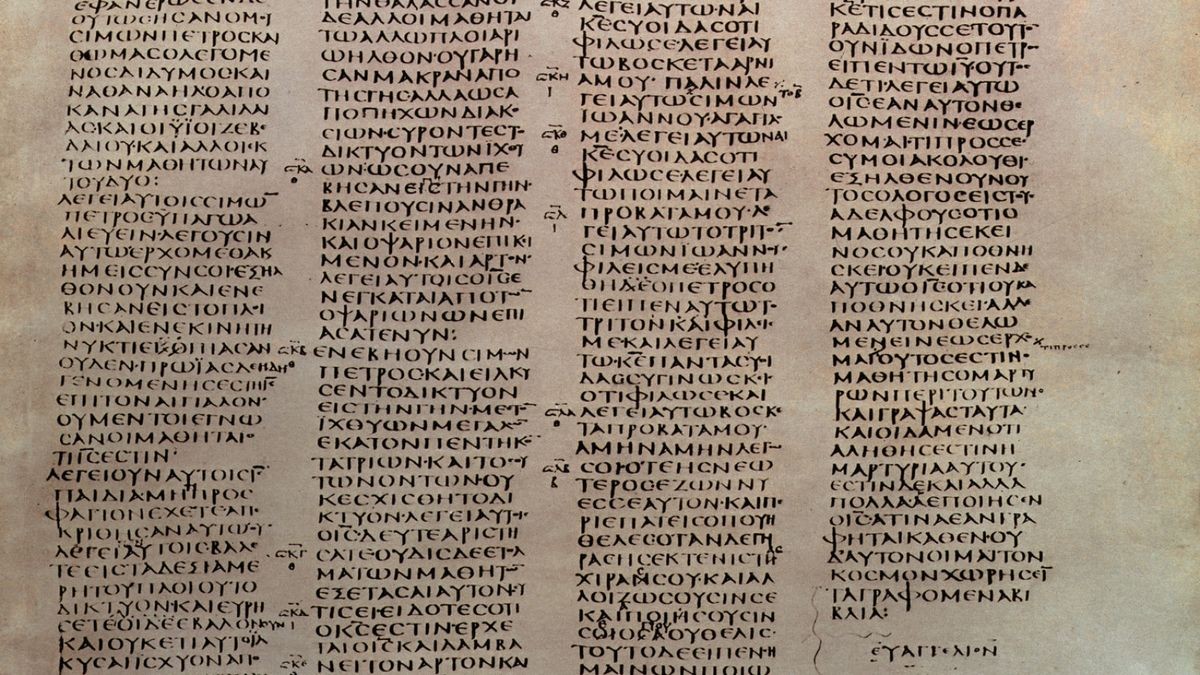 ΟΥΤΩϹΗϹΑΝΟΜΟΙ
ϹΙΜΩΝΠΕΤΡΟϹΚΑΙ
ΘΩΜΑϹΟΛΕΓΟΜΕ
ΝΟϹΔΙΔΥΜΟϹΚΑΙ
ΝΑΘΑΝΑΗΛΟΑΠΟ
ΚΑΝΑΤΗϹΓΑΛΙΛΑΙ
ΑϹΚΑΙΟΙΫΙΟΙΖΕΒΕ
ΔΑΙΟΥΚΑΙΑΛΛΟΙΕΚ
ΤΩΝΜΑΘΗΤΩΝΑΥ
ΤΟΥΔΥΟ:
ΛΕΓΕΙΑΥΤΟΙϹϹΙΜΩ̅
ΠΕΤΡΟϹΥΠΑΓΩΑ
ΛΙΕΥΕΙΝ·ΛΕΓΟΥϹΙΝ
ΑΥΤΩΕΡΧΟΜΕΘΑΚ
ΗΜΕΙϹϹΥΝϹΟΙ·ΕΞΗΛ
ΘΟΝΟΥΝΚΑΙΕΝΕ
ΒΗϹΑΝΕΙϹΤΟΠΛΟΙ
ΟΝ·ΚΑΙΕΝΕΚΙΝΗΤΗ
ΝΥΚΤΙΕΚΟΠΙΑϹΑΝ
ΟΥΔΕΝ·ΠΡΩΪΑϹΔΕΗΔΗ
ΓΕΝΟΜΕΝΗϹΕϹΤΗΙ̅Ϲ̅
ΕΠΙΤΟΝΑΙΓΙΑΛΟΝ·
ΟΥΜΕΝΤΟΙΕΓΝΩ
ϹΑΝΟΙΜΑΘΗΤΑΙΟ
ΤΙΙ̅Ϲ̅ΕϹΤΙΝ·
ΛΕΓΕΙΟΥΝΑΥΤΟΙϹΙ̅Ϲ̅
ΠΑΙΔΙΑΜΗΠΡΟϹ
ΦΑΓΙΟΝΕΧΕΤΕΑΠΕ
ΚΡΙΘΗϹΑΝΑΥΤΩΟΥ
ΛΕΓΕΙΑΥΤΟΙϹ·ΒΑΛΕ
ΤΕΕΙϹΤΑΔΕΞΙΑΜΕ
ΡΗΤΟΥΠΛΟΙΟΥΤΟ
ΔΙΚΤΥΟΝ·ΚΑΙΕΥΡΗ
ϹΕΤΕΟΙΔΕΕΒΑΛΟΝ
ΚΑΙΟΥΚΕΤΙΑΥΤΟΕΛ
ΚΥϹΑΙΙϹΧΥΟΝΑΠΟ
ΔΕΑΛΛΟΙΜΑΘΗΤΑΙ
ΤΩΑΛΛΩΠΛΟΙΑΡΙ
ΩΗΛΘΟΝ·ΟΥΓΑΡΗ
ϹΑΝΜΑΚΡΑΝΑΠΟ
ΤΗϹΓΗϹ·ΑΛΛΑΩϹΑ
ΠΟΠΗΧΩΝΔΙΑΚΟ
ϹΙΩΝ·ϹΥΡΟΝΤΕϹΤΟ
ΔΙΚΤΥΟΝΤΩΝΙΧΘΥ
ΩΝ·ΩϹΟΥΝΑΠΕ
ΒΗϹΑΝΕΙϹΤΗΝΓΗΝ·
ΒΛΕΠΟΥϹΙΝΑΝΘΡΑ
ΚΙΑΝΚΕΙΜΕΝΗΝ·
ΚΑΙΟΨΑΡΙΟΝΕΠΙΚΙ
ΜΕΝΟΝ·ΚΑΙΑΡΤΟΝ·
ΛΕΓΕΙΑΥΤΟΙϹΟΙ̅Ϲ̅Ε
ΝΕΓΚΑΤΑΙΑΠΟΤΩ̅
ΟΨΑΡΙΩΝΩΝΕΠΙ
ΑϹΑΤΕΝΥΝ:
ΕΝΕΒΗΟΥΝϹΙΜΩΝ
ΠΕΤΡΟϹΚΑΙΕΙΛΚΥ
ϹΕΝΤΟΔΙΚΤΥΟΝ
ΕΙϹΤΗΝΓΗΝ·ΜΕϹΤΟ̅
ΙΧΘΥΩΝΜΕΓΑΛΩ
ΕΚΑΤΟΝΠΕΝΤΗΚΟ
ΤΑΤΡΙΩΝ·ΚΑΙΤΟϹΟΥ
ΤΩΝΟΝΤΩΝΟΥ
ΚΕϹΧΙϹΘΗΤΟΔΙ
ΚΤΥΟΝ·ΛΕΓΕΙΑΥΤΟΙ
ΟΙ̅Ϲ̅ΔΕΥΤΕΑΡΙϹΤΗ
ϹΑΤΕΟΥΔΙϹΔΕΕΤΟΛ
ΜΑΤΩΝΜΑΘΗΤΩ̅
ΕΞΕΤΑϹΑΙΑΥΤΟΝ
ΤΙϹΕΙ·ΕΙΔΟΤΕϹΟΤΙ
ΟΚ̅Ϲ̅ΕϹΤΙΝ·ΕΡΧΕ
ΤΑΙΟΙ̅Ϲ̅ΚΑΙΛΑΜΒΑ
ΝΕΙΤΟΝΑΡΤΟΝΚΑΙ
ΛΕΓΕΙΑΥΤΩΝΑΙ
Κ̅Ε̅ϹΥΟΙΔΑϹΟΤΙ
ΦΙΛΩϹΕ·ΛΕΓΕΙΑΥ
ΤΩΒΟϹΚΕΤΑΑΡΝΙ
ΑΜΟΥ·ΠΑΛΙΝΛΕ
ΓΕΙΑΥΤΩϹΙΜΩΝ
ΙΩΑΝΝΟΥ·ΑΓΑΠΑϹ
ΜΕ·ΛΕΓΕΙΑΥΤΩΝΑΙ
Κ̅Ε̅ϹΥΟΙΔΑϹΟΤΙ
ΦΙΛΩϹΕΛΕΓΕΙΑΥ
ΤΩΠΟΙΜΑΙΝΕΤΑ
ΠΡΟΒΑΤΑΜΟΥ·ΛΕ
ΓΕΙΑΥΤΩΤΟΤΡΙΤΟ
ϹΙΜΩΝΙΩΑΝΝΟΥ
ΦΙΛΕΙϹΜΕ·ΕΛΥΠΗ
ΘΗΔΕΟΠΕΤΡΟϹΟ
ΤΙΕΙΠΕΝΑΥΤΩΤΟ
ΤΡΙΤΟΝΚΑΙΦΙΛΙϹ
ΜΕΚΑΙΛΕΓΕΙΑΥ
ΤΩΚΕΠΑΝΤΑϹΥΟΙ
ΔΑϹϹΥΓΙΝΩϹΚΙϹ
ΟΤΙΦΙΛΩϹΕΚΑΙ
ΛΕΓΕΙΑΥΤΩΒΟϹΚΕ
ΤΑΠΡΟΒΑΤΑΜΟΥ·
ΑΜΗΝΑΜΗΝΛΕΓΩ
ϹΟΙΟΤΕΗϹΝΕΩ
ΤΕΡΟϹΕΖΩΝΝΥ
ΕϹϹΕΑΥΤΟΝ·ΚΑΙΠΕ
ΡΙΕΠΑΤΕΙϹΟΠΟΥΗ
ΘΕΛΕϹΟΤΑΝΔΕΓΗ
ΡΑϹΗϹΕΚΤΕΝΙϹΤΑϹ
ΧΙΡΑϹϹΟΥ·ΚΑΙΑΛ
ΛΟΙΖΩϹΟΥϹΙΝϹΕ
ΚΑΙΠΟΙΗϹΟΥϹΙΝ
ϹΟΙΟϹΑΟΥΘΕΛΙϹ·
ΤΟΥΤΟΔΕΕΙΠΕΝϹΗ
ΜΑΙΝΩΝΠΟΙΩ
ΚΕΤΙϹΕϹΤΙΝΟΠΑ
ΡΑΔΙΔΟΥϹϹΕΤΟΥΤΟ
ΟΥΝΪΔΩΝΟΠΕΤΡΟ
ΕΙΠΕΝΤΩΙ̅Υ̅·ΟΥΤΟϹ
ΔΕΤΙ·ΛΕΓΕΙΑΥΤΩ
ΟΙ̅Ϲ̅ΕΑΝΑΥΤΟΝΘΕ
ΛΩΜΕΝΙΝ·ΕΩϹΕΡ
ΧΟΜΑΙ·ΤΙΠΡΟϹϹΕ·
ϹΥΜΟΙΑΚΟΛΟΥΘΙ·
ΕΞΗΛΘΕΝΟΥΝΟΥ
ΤΟϹΟΛΟΓΟϹΕΙϹΤΟΥϹ
ΑΔΕΛΦΟΥϹΟΤΙΟ
ΜΑΘΗΤΗϹΕΚΕΙ
ΝΟϹΟΥΚΑΠΟΘΝΗ
ϹΚΕΙ·ΟΥΚΕΙΠΕΝΔΕ
ΑΥΤΩΟΙ̅Ϲ̅ΟΤΙΟΥΚΑ
ΠΟΘΝΗϹΚΕΙ·ΑΛΛ
ΑΝΑΥΤΟΝΘΕΛΩ
ΜΕΝΕΙΝΕΩϹΕΡΧΟ
ΜΑΙΟΥΤΟϹΕϹΤΙΝΟ
ΜΑΘΗΤΗϹΟΜΑΡΤΥ
ΡΩΝΠΕΡΙΤΟΥΤΩΝ
ΚΑΙΓΡΑΨΑϹΤΑΥΤΑ·
ΚΑΙΟΙΔΑΜΕΝΟΤΙ
ΑΛΗΘΗϹΕϹΤΙΝΗ
ΜΑΡΤΥΡΙΑΑΥΤΟΥ·
ΕϹΤΙΝΔΕΚΑΙΑΛΛΑ
ΠΟΛΛΑΑΕΠΟΙΗϹΕΝ
ΟΙ̅Ϲ̅·ΑΤΙΝΑΕΑΝΓΡΑ
ΦΗΤΑΙΚΑΘΕΝΟΥ
ΔΑΥΤΟΝΟΙΜΑΙΤΟΝ
ΚΟϹΜΟΝΧΩΡΗϹΕΙ̅
ΤΑΓΡΑΦΟΜΕΝΑΒΙ
ΒΛΙΑ:
ΕΥΑΓΓΕΛΙΟΝ